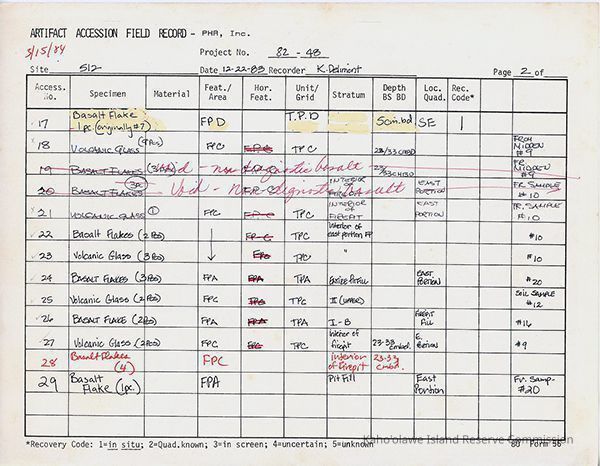 ARTIFACT ACCESSION FIELD RECORD - PHR, Inc.
3/15/84
Project No. 82 - 48
Site 512 Date 12-22-83 Recorder K. Deliment Page 2 of
Access. No. Specimen Material Feat./ Area Hor. Feat. Unit/ Grid Stratum Depth BS BD Loc. Quad. Rec. Code*
17 Basalt Flake 1pc. (originally #7) FPD T.P.D 50m.bd SE 1
18 VOLCANIC GLASS FPC TPC 23/33CMBD FROM MIDDEN #9
19 BASALT FLAKES Void - non diagnostic basalt 23/33CMBD FR. MIDDEN #9
20 BASALT FLAKES (3pc) Void - Non diagnostic basalt INTERIOR OF EAST PORTION FR. SAMPLE #10
21 VOLCANIC GLASS (1) FPC TPC INTERIOR OF FIREPIT EAST PORTION FR. SAMPLE #10
22 Basalt Flakes (2 pcs) TPC Interior of east portion FP #10
23 Volcanic Glass (3 pcs) TPC " #10
24 BASALT FLAKES (3 pcs) FPA FPA TPA ENTIRE PIT FILL EAST PORTION #20
25 Volcanic Glass (2 pcs) FPC TPC II (UPPER) SOIL SAMPLE #12
26 BASALT FLAKES (2 pcs) FPA FPA TPA I-B FIREPIT FILL #16
27 Volcanic Glass (2 pcs) FPC FPC TPC Interior of firepit 23-33 cmbd. E. portion #9
28 Basalt Flakes (4) FPC interior of firepit 23-33 cmbd.
29 Basalt Flake (1pc.) FPA Pit Fill East Portion Fr. Samp- #20
*Recovery Code: 1=in situ; 2=Quad.known; 3=in screen; 4=uncertain; 5=unknown
80 Form 56
Kaho'olawe Island Reserve Commission